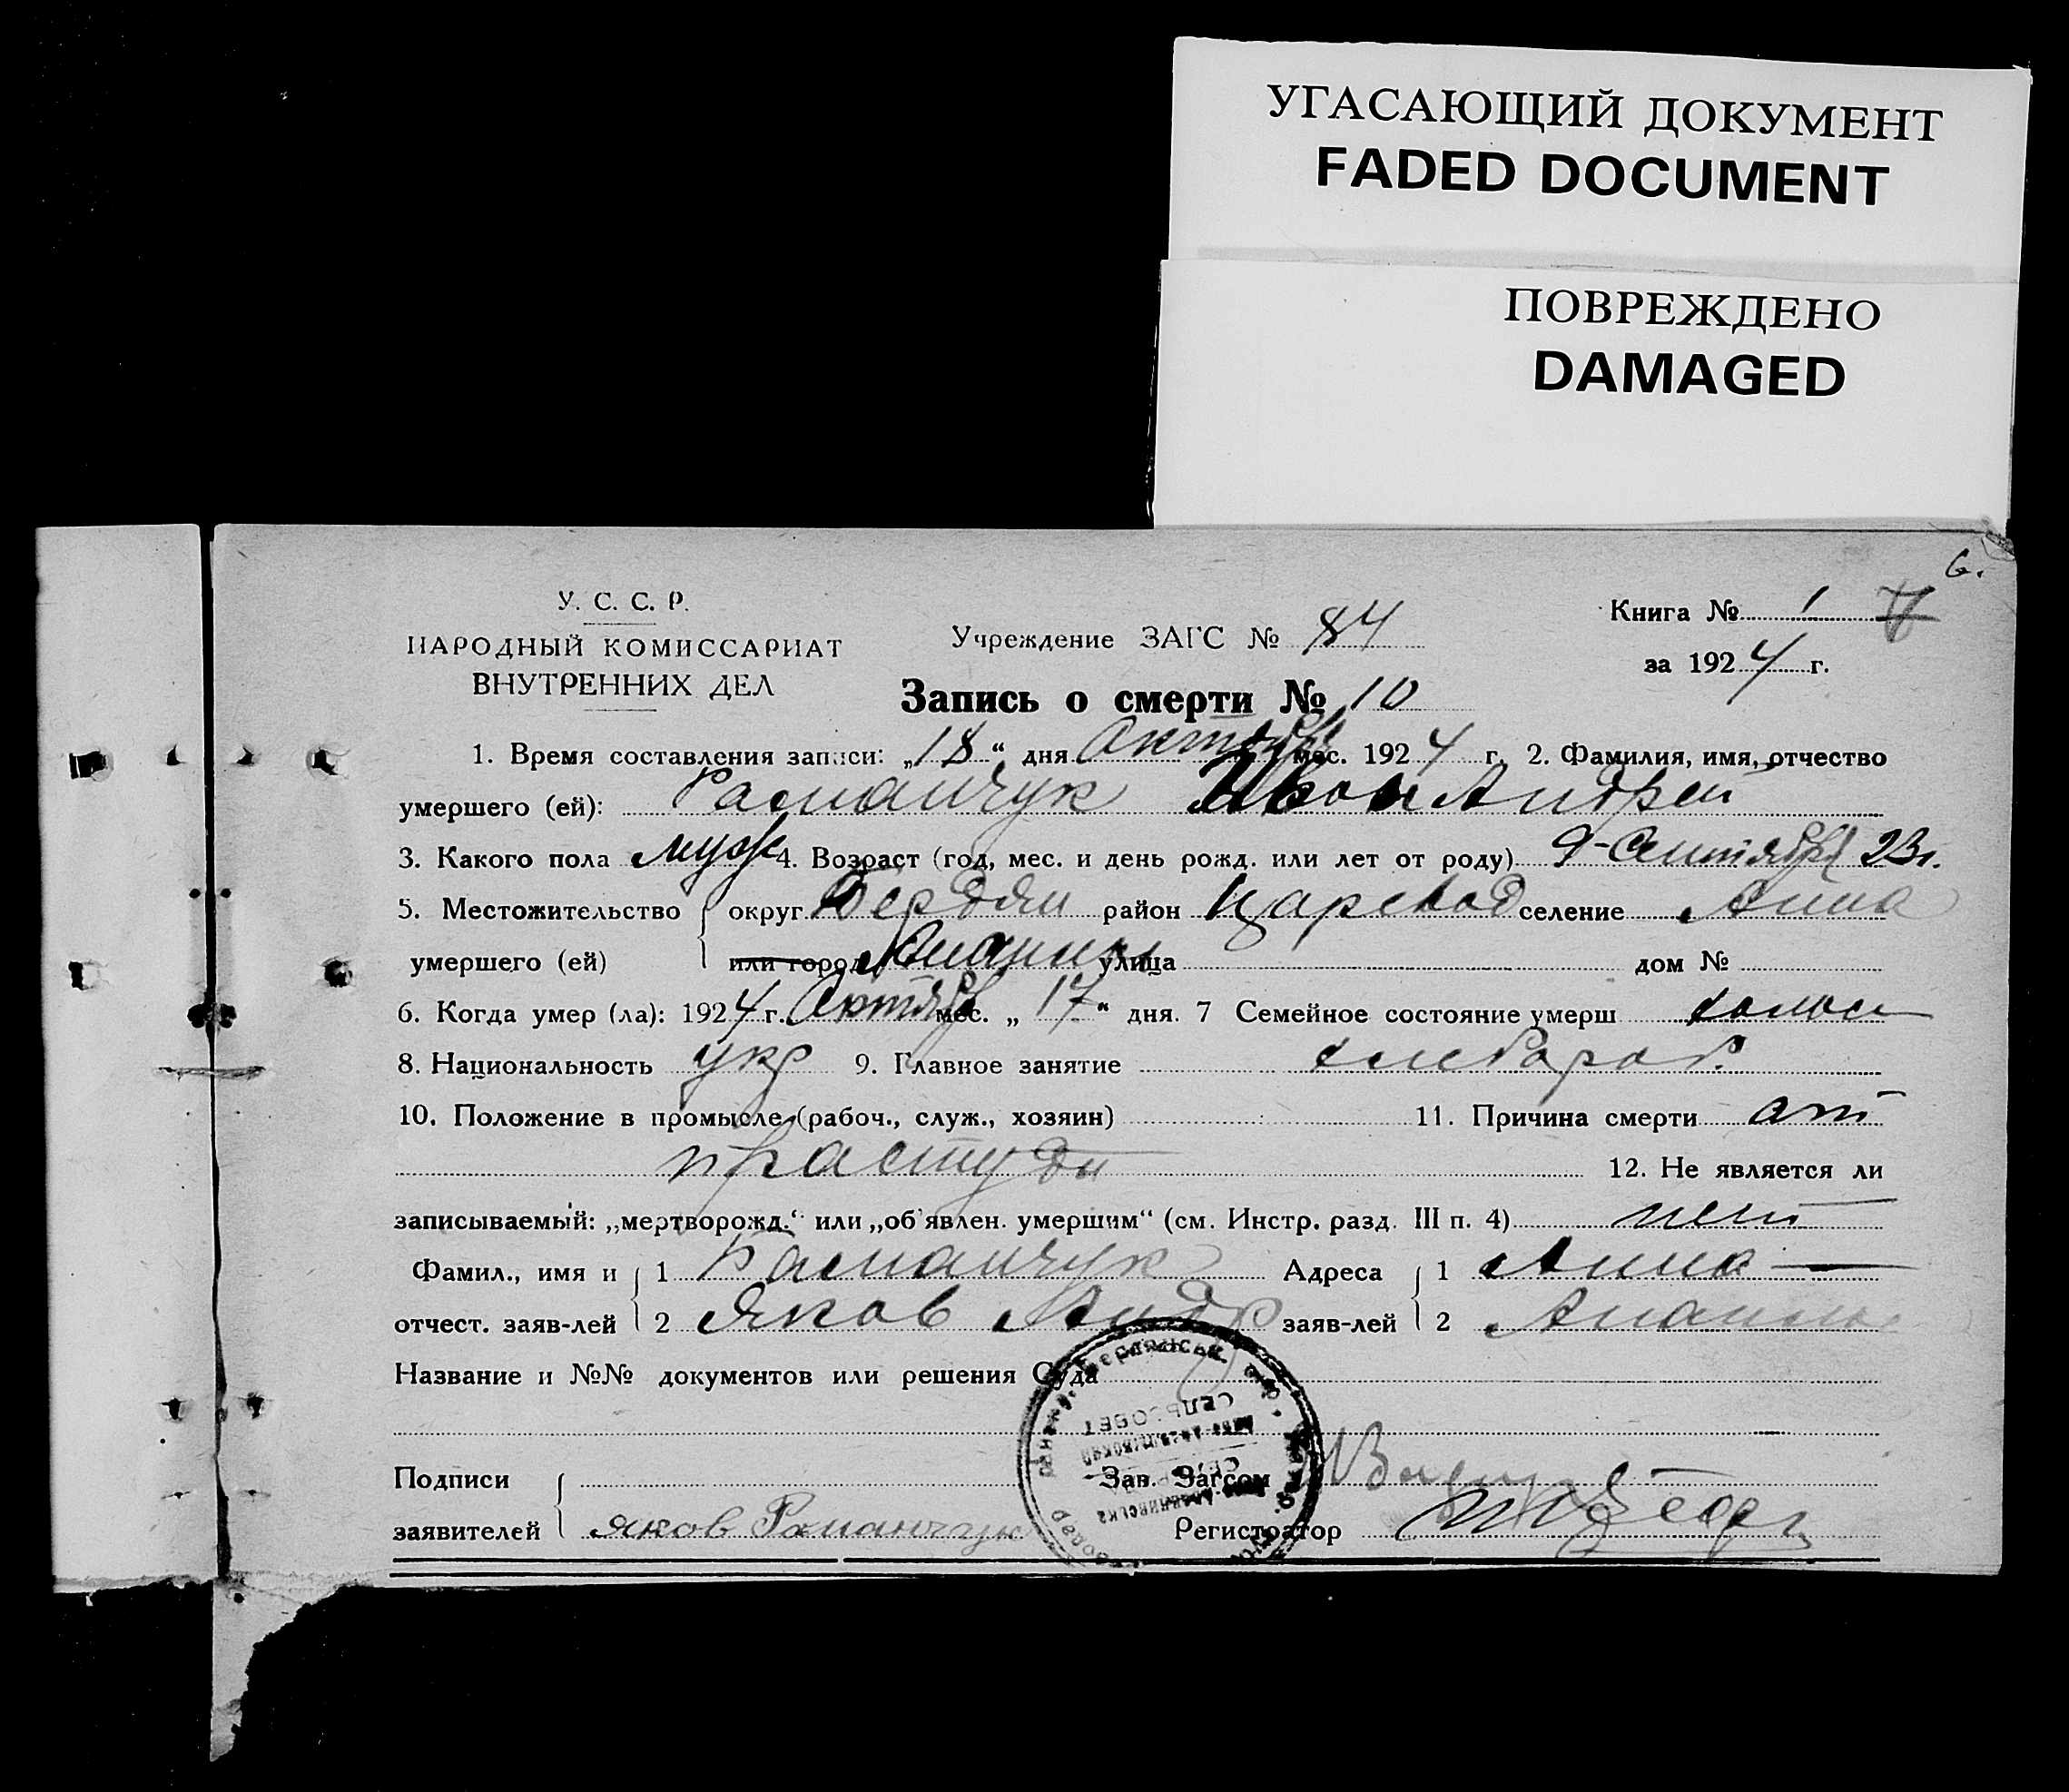 УГАСАЮЩИЙ ДОКУМЕНТ
FADED DOCUMENT
ПОВРЕЖДЕНО
DAMAGED
6.
У. С. С. Р.
НАРОДНЫЙ КОМИССАРИАТ
ВНУТРЕННИХ ДЕЛ
Учреждение ЗАГС № 84
Книга № 1
за 1924 г.
Запись о смерти № 10
1. Время составления записи: „18“ дня Октября мес. 1924 г. 2. Фамилия, имя, отчество
умершего (ей): Раманчук Иван Андрей
3. Какого пола муж 4. Возраст (год, мес. и день рожд. или лет от роду) 9-Сентября 23г.
5. Местожительство округ Бердян район Царевод селение Анно
умершего (ей) или город улица дом №
6. Когда умер (ла): 1924 г. Октябр мес. „17“ дня. 7 Семейное состояние умерш холост
8. Национальность укр 9. Главное занятие хлебороб.
10. Положение в промысле (рабоч., служ., хозяин) 11. Причина смерти от
прастуди 12. Не является ли
записываемый: „мертворожд.“ или „об'явлен. умершим“ (см. Инстр. разд. III п. 4) нет
Фамил., имя и 1 Раманчук Адреса 1 Анно
отчест. заяв-лей 2 Яков Андр заяв-лей 2
Название и №№ документов или решения Суда
СЕЛЬСОВЕТ
Подписи Зав. Загсом
заявителей Яков Раманчук Регистратор